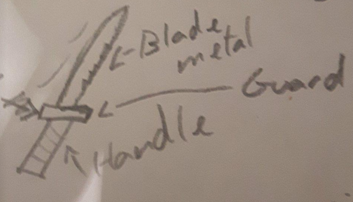 Blade
metal
Guard
Handle